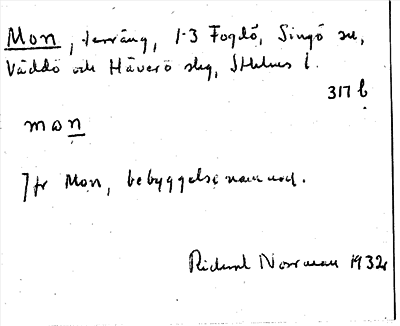 Mon, terräng, 1-3 Fogdö, Singö sn,
Väddö och Häverö skg, Sthlms l.
317 b
mon
Jfr Mon, bebyggelsenamnet.
Rickard Norrman 1932